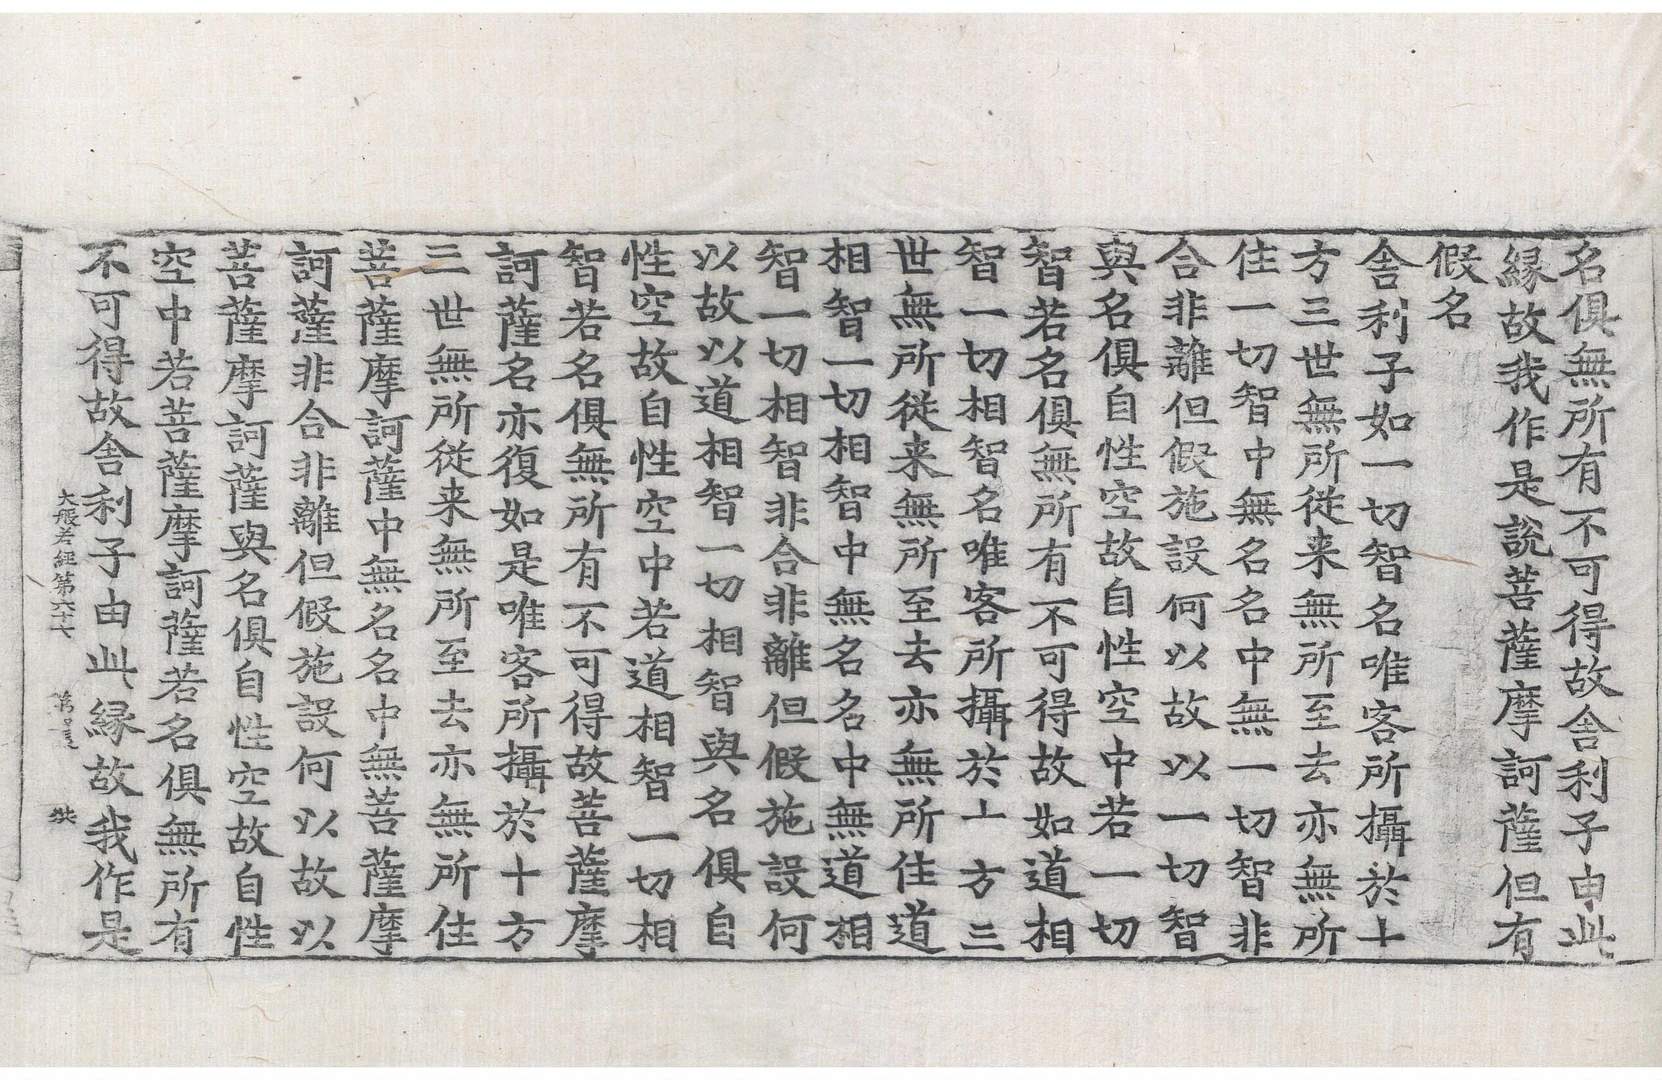 名俱無所有不可得故舍利子由此
緣故我作是說菩薩摩訶薩但有
假名
舍利子如一切智名唯客所攝於十
方三世無所從来無所至去亦無所
住一切智中無名名中無一切智非
合非離但假施設何以故以一切智
與名俱自性空故自性空中若一切
智若名俱無所有不可得故如道相
智一切相智名唯客所攝於十方三
世無所從来無所至去亦無所住道
相智一切相智中無名名中無道相
智一切相智非合非離但假施設何
以故以道相智一切相智與名俱自
性空故自性空中若道相智一切相
智若名俱無所有不可得故菩薩摩
訶薩名亦復如是唯客所攝於十方
三世無所從来無所至去亦無所住
菩薩摩訶薩中無名名中無菩薩摩
訶薩非合非離但假施設何以故以
菩薩摩訶薩與名俱自性空故自性
空中若菩薩摩訶薩若名俱無所有
不可得故舍利子由此緣故我作是
大般若經第六十七